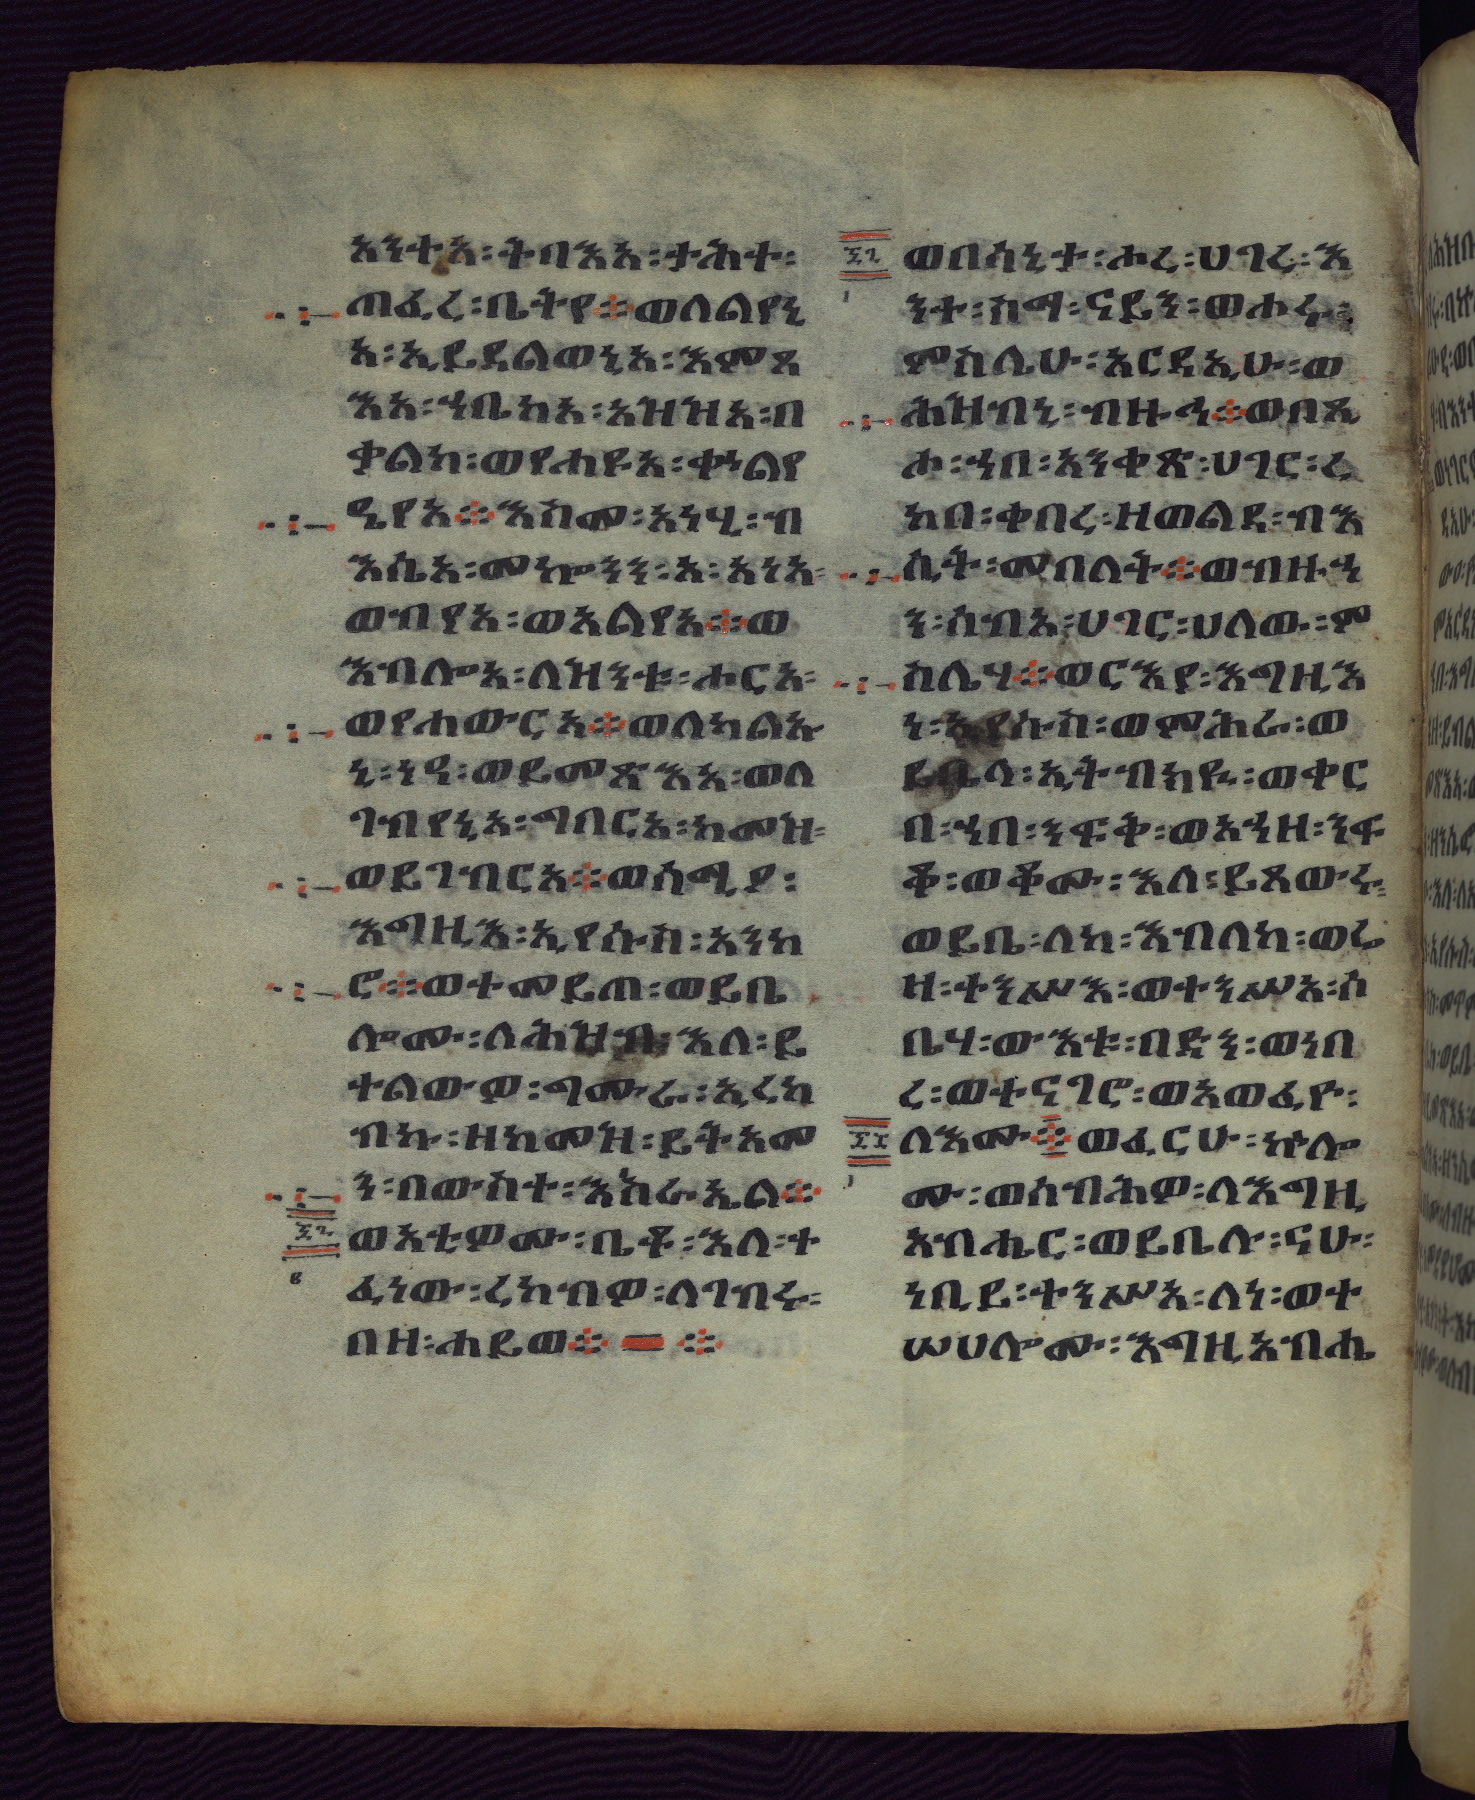 አንተእ፡ትባእእ፡ታሕተ፡
ጠፈረ፡ቤትየ፨ወለልየኒ
እ፡ኢይደልወኒእ፡እምጻ
እእ፡ኀቤከእ፡አዝዝእ፡በ
ቃልከ፡ወየሐዩእ፡ቍልዔ
ዔየእ፨እስመ፡አነሂ፡ብ
እሲእ፡መኰንን፡እ፡አነእ፡
ወብየእ፡ወእልየእ፨ወ
እብሎእ፡ለዝንቱ፡ሖርእ፡
ወየሐውርእ፨ወለካልኡ
ኒ፡ነዓ፡ወይመጽእእ፡ወለ
ገብየኒእ፡ግበርእ፡ከመዝ፡
ወይገብርእ፨ወሰሚዖ፡
እግዚእ፡ኢየሱስ፡አንከ
ሮ፨ወተመይጠ፡ወይቤ
ሎሙ፡ለሕዝብ፡እለ፡ይ
ተልውዎ፡ግሙራ፡ኢረከ
ብኩ፡ዘከመዝ፡ይትአመ
ን፡በውስተ፡እስራኤል፨
ወአቲዎሙ፡ቤቶ፡እለ፡ተ
ፈነው፡ረከብዎ፡ለገብሩ፡
በዘ፡ሐይወ፨ ፨
ወበሳኒታ፡ሖረ፡ሀገረ፡እ
ንተ፡ስማ፡ናይን፡ወሖሩ፡
ምስሌሁ፡አርዳኢሁ፡ወ
ሕዝብኒ፡ብዙኅ፨ወበጺ
ሖ፡ኀበ፡አንቀጸ፡ሀገር፡ረ
ከበ፡ቀበረ፡ዘወልደ፡ብእ
ሲት፡መበለት፨ወብዙኅ
ን፡ሰብእ፡ሀገር፡ሀለው፡ም
ስሌሃ፨ወርእያ፡እግዚእ
ነ፡ኢየሱስ፡ወምሕራ፡ወ
ይቤላ፡ኢትብክዪ፡ወቀር
በ፡ኀበ፡ንፍቅ፡ወአኀዘ፡ንፍ
ቆ፡ወቆሙ፡እለ፡ይጸውሩ፡
ወይቤ፡ለከ፡እብለከ፡ወሬ
ዛ፡ተንሥእ፡ወተንሥአ፡ሶ
ቤሃ፡ውእቱ፡በድን፡ወነበ
ረ፡ወተናገሮ፡ወአወፈዮ፡
ለእሙ፨ወፈርሁ፡ኵሎ
ሙ፡ወሰብሕዎ፡ለእግዚ
አብሔር፡ወይቤሉ፡ናሁ፡
ነቢይ፡ተንሥአ፡ለነ፡ወተ
ሠሀሎሙ፡እግዚአብሔ